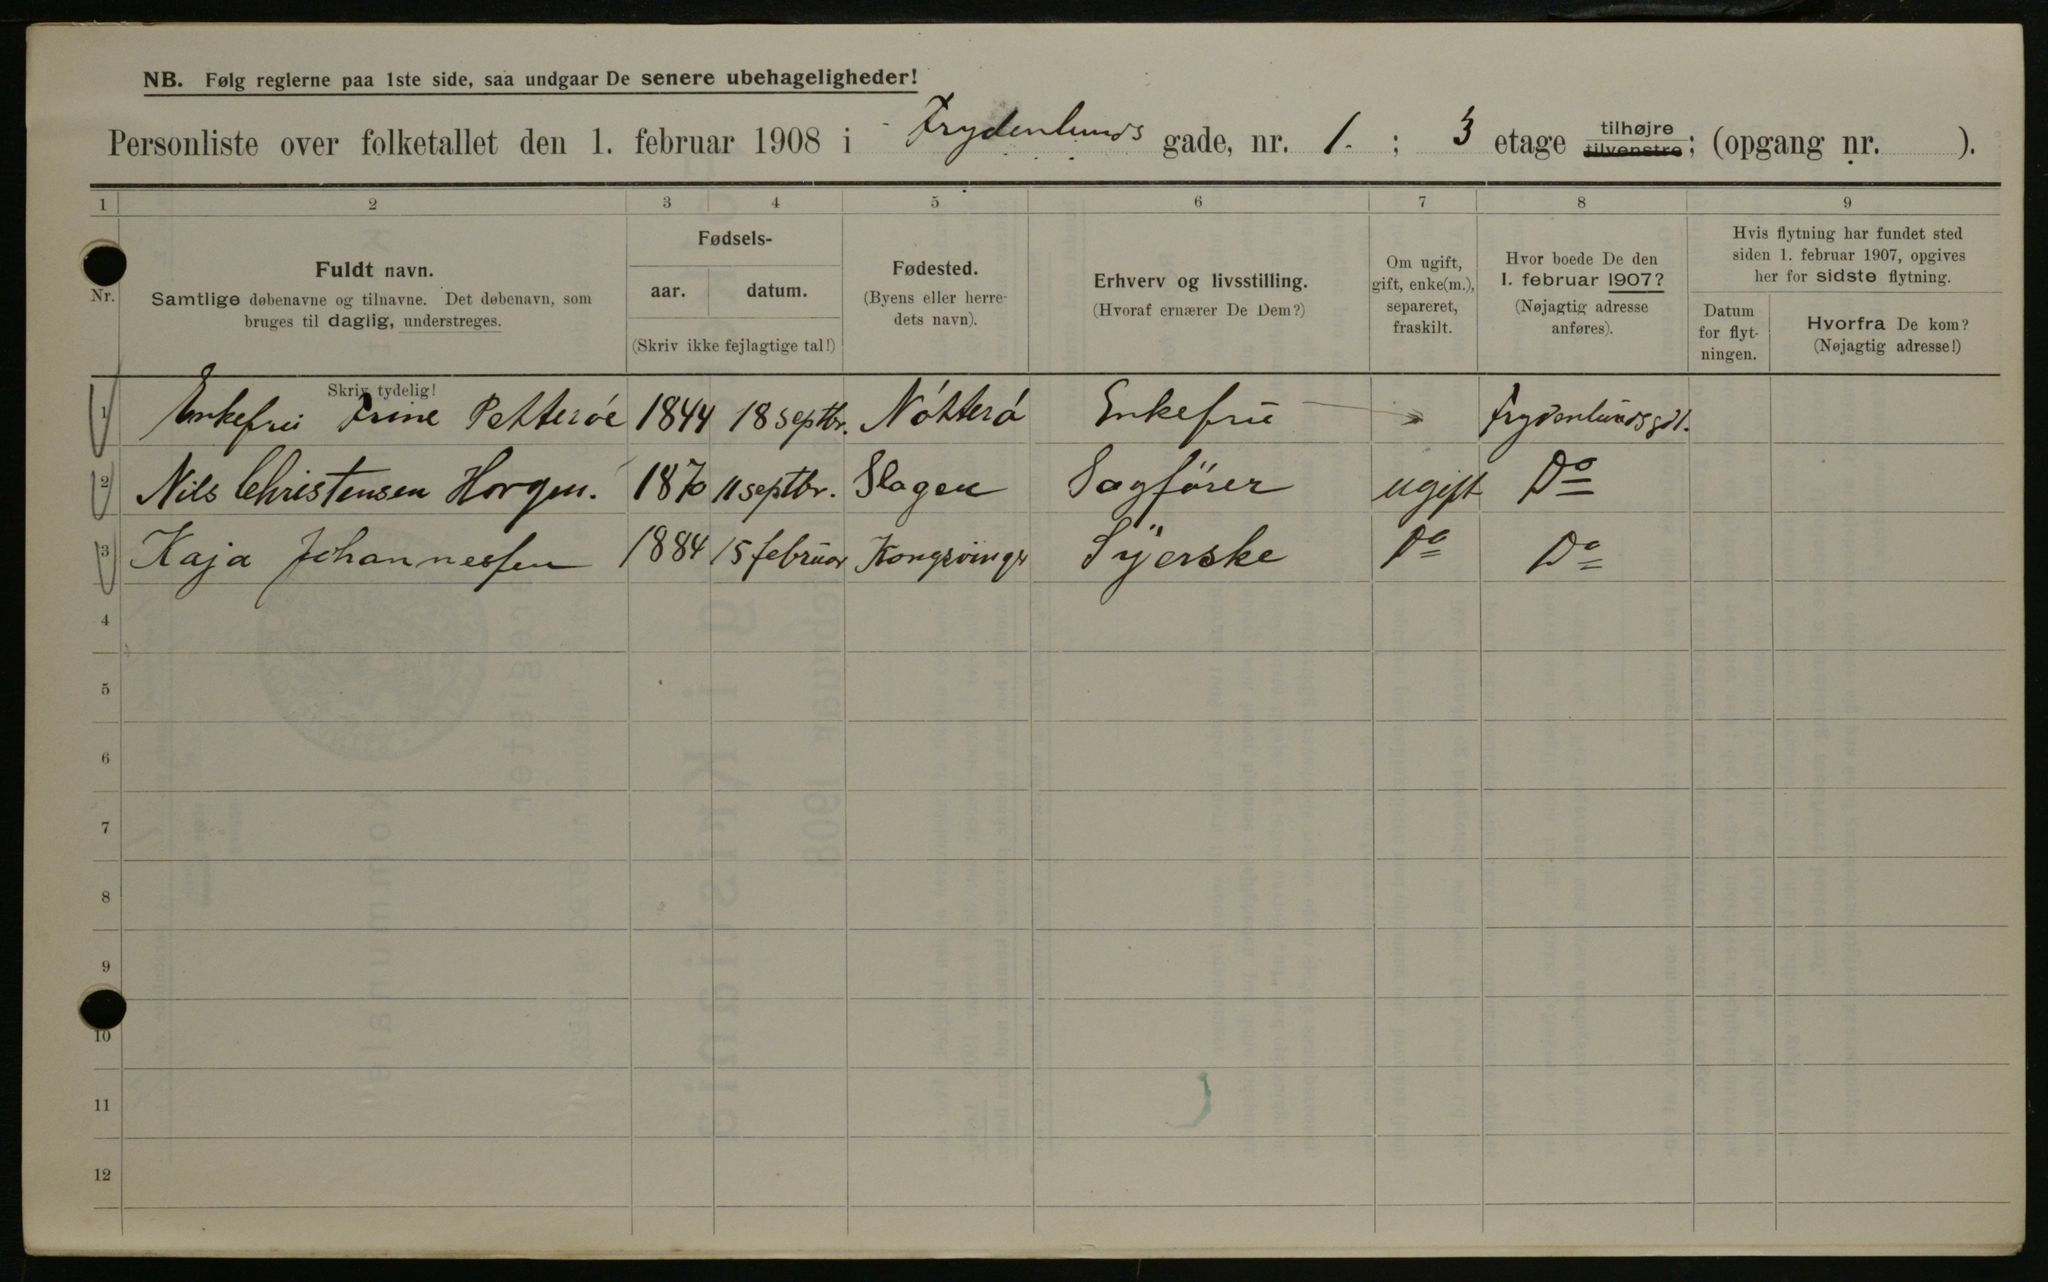 NB. Følg reglerne paa 1ste side, saa undgaar De senere ubehageligheder!
Personliste over folketallet den 1. februar 1908 i Frydenlunds gade, nr. 1. ; 3 etage tilhøjre tilvenstre; (opgang nr. ).
1 2 3 4 5 6 7 8 9
Nr.
Fuldt navn.
Samtlige døbenavne og tilnavne. Det døbenavn, som
bruges til daglig, understreges.
Skriv tydelig!
Fødsels-
aar. datum.
(Skriv ikke fejlagtige tal!)
Fødested.
(Byens eller herre-
dets navn).
Erhverv og livsstilling.
(Hvoraf ernærer De Dem?)
Om ugift,
gift, enke(m.),
separeret,
fraskilt.
Hvor boede De den
1. februar 1907?
(Nøjagtig adresse
anføres).
Hvis flytning har fundet sted
siden 1. februar 1907, opgives
her for sidste flytning.
Datum
for flyt-
ningen.
Hvorfra De kom?
(Nøjagtig adresse!)
1 Enkefru Trine Petterøe 1844 18 septbr. Nötterö Enkefru Frydenlundsgd 1.
2 Nils Christensen Horgen. 1870 11 septbr. Slagen Sagfører ugift Do
3 Kaja Johannessen 1884 15 februar Kongsvinger Syerske Do Do
4
5
6
7
8
9
10
11
12